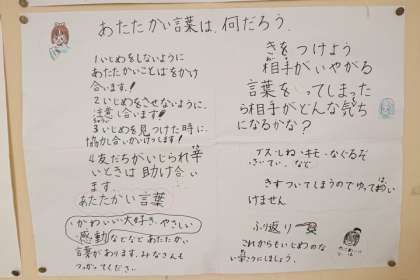 あたたかい言葉は、何だろう。
1いじめをしないように
あたたかいことばをかけ
合います!
2いじめをさせないように、
注意し合います!
3いじめを見つけた時に、
協力し合いかけつけます!
4友だちがいじられ
いときは助け合い
ます
あたたかい言葉
・かわいい大好き、やさしい
感動などなどあたたかい
言葉があります。みなさんも
つかってください。
きをつけよう
相手がいやがる
言葉をいってしまった
ら相手がどんな気もち
になるかな?
ブス・しね・キモ・なぐるぞ
など
きずついてしまうのでゆっては
いけません
ふり返り
これからもいじめのな
にしましょう。